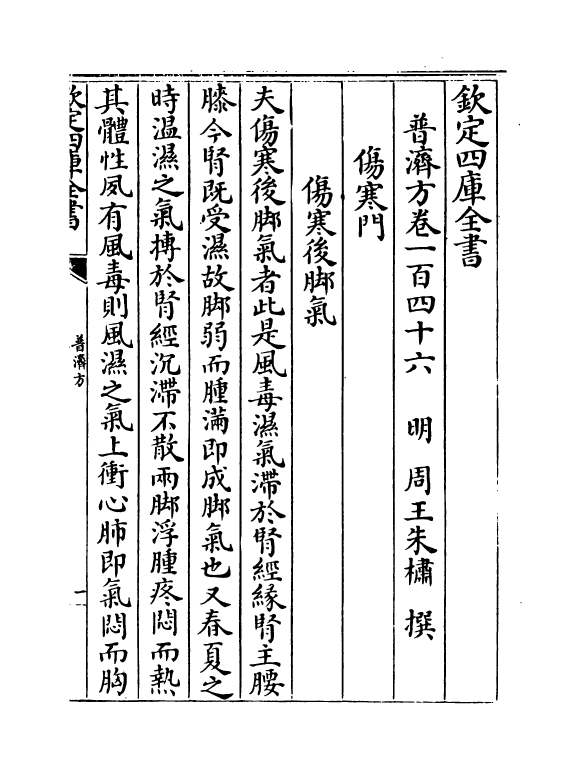 欽定四庫全書
普濟方卷一百四十六　明　周王朱橚　撰
傷寒門
傷寒後脚氣
夫傷寒後脚氣者此是風毒濕氣滯於腎經緣腎主腰
膝今腎既受濕故脚弱而腫滿即成脚氣也又春夏之
時温濕之氣摶於腎經沉滯不散兩脚浮腫疼悶而熱
其體性夙有風毒則風濕之氣上衝心肺即氣悶而胸
欽定四庫全書
普濟方
一